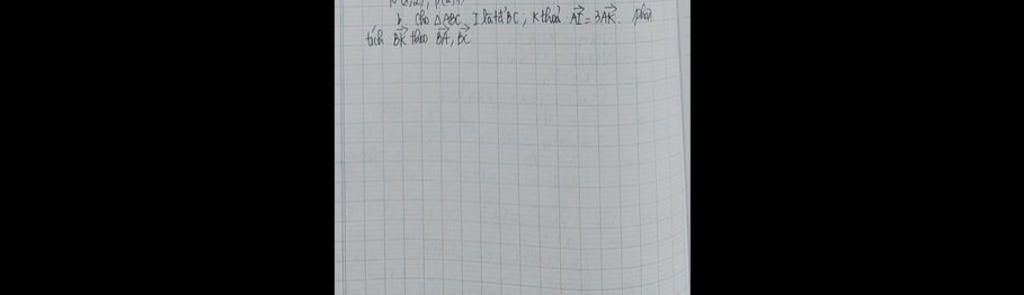 b. Cho ΔABC, I là tđ BC, K thoả AI⃗ = 3AK⃗. Phân
tích BK⃗ theo BA⃗, BC⃗